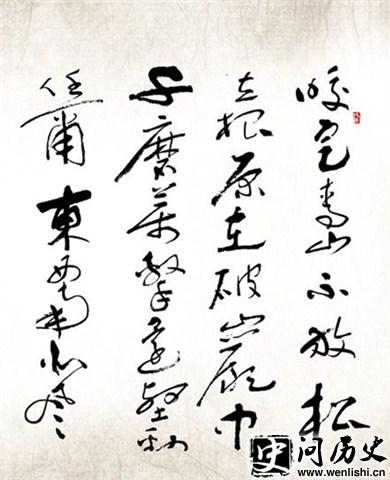 咬定青山不放松
立根原在破巖中
千磨萬擊還堅勁
任爾東西南北風
史问历史
www.wenlishi.cn